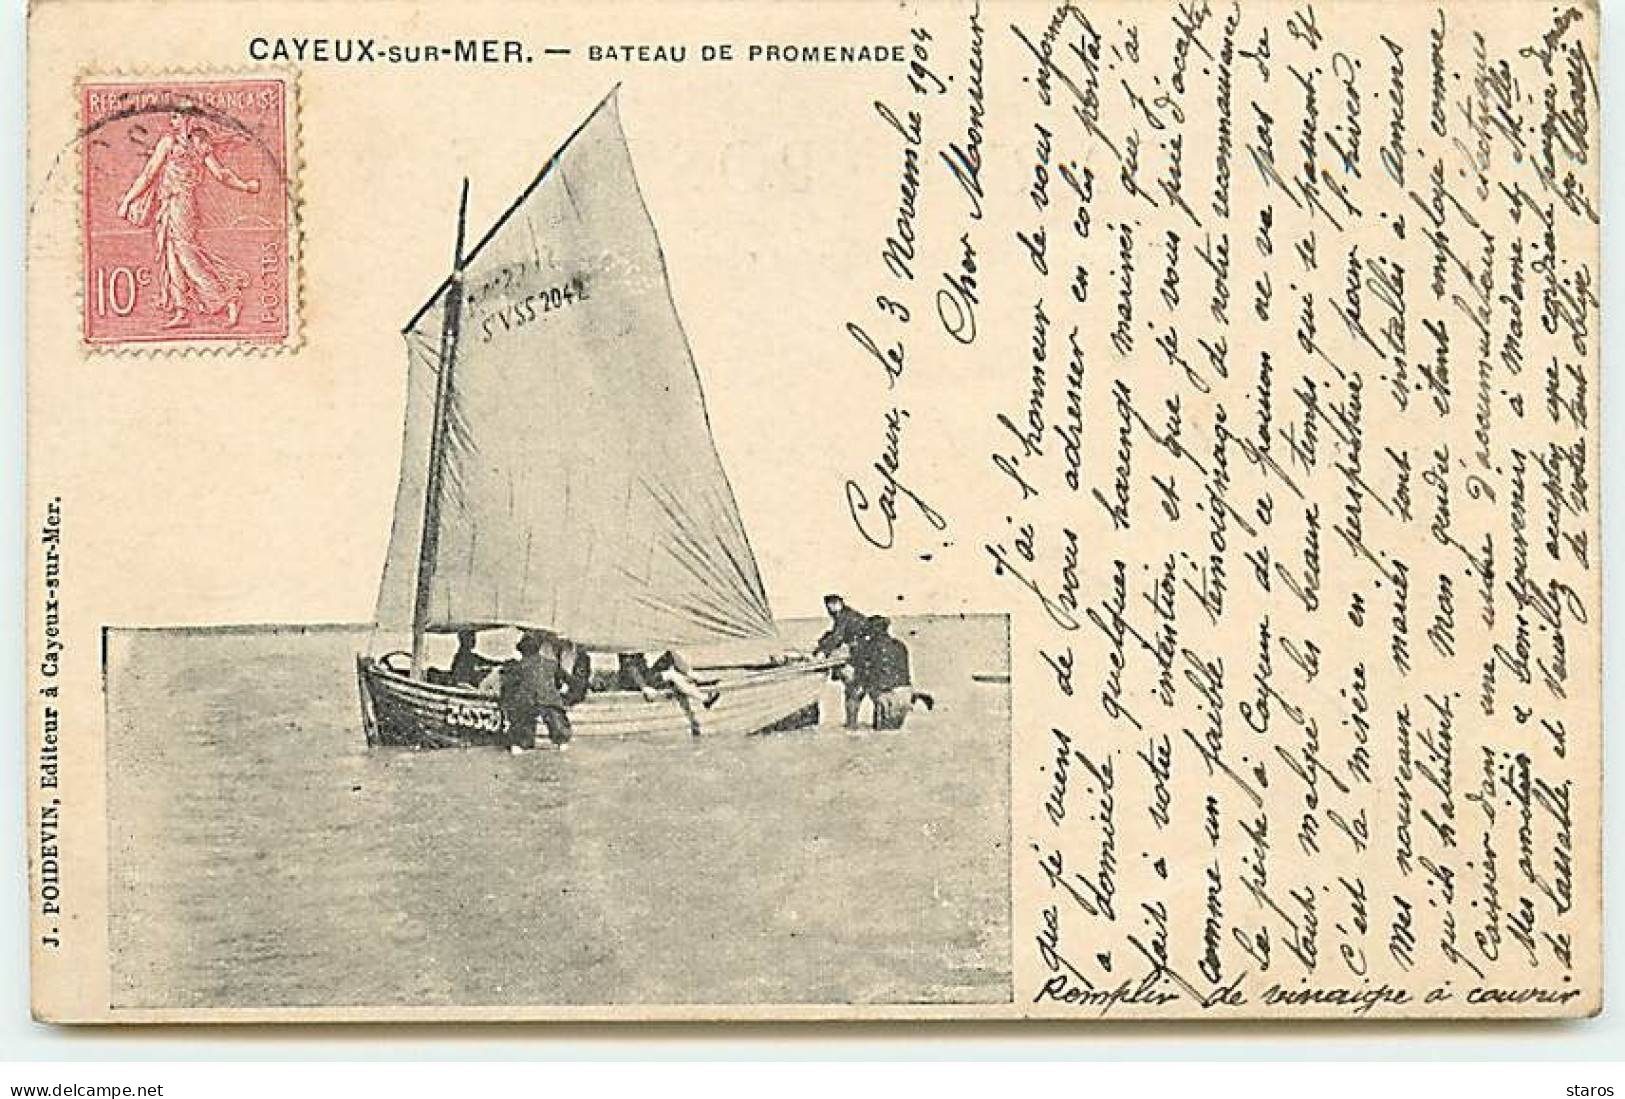 CAYEUX-SUR-MER. — BATEAU DE PROMENADE
REPUBLIQUE FRANÇAISE
10c
POSTES
SVSS 2042
J. POIDEVIN, Editeur à Cayeux-sur-Mer.
Cayeux, le 3 Novembre 1904
Cher Monsieur
J'ai l'honneur de vous informer
que je viens de vous adresser en colis postal
a domicile quelques harengs marinés, que j'ai
fait à votre intention et que je vous prie d'accepter
comme un faible témoignage de notre reconnaissance
La pêche à Cayeux de ce poisson ne va pas du
tout malgré les beaux temps qui se passent. Et
c'est la misère en perspective pour l'hiver.
Mes nouveaux mariés sont installés à Amiens
qu'ils habitent. Mon gendre étant employé comme
Caissier dans une usine d'accumulateurs électriques
Mes amitiés & bons souvenirs à Madame et Melles
de Lassalle, et Veuillez accepter une cordiale poignée de main
de votre tout obligé
Remplir de vinaigre à couvrir
staros